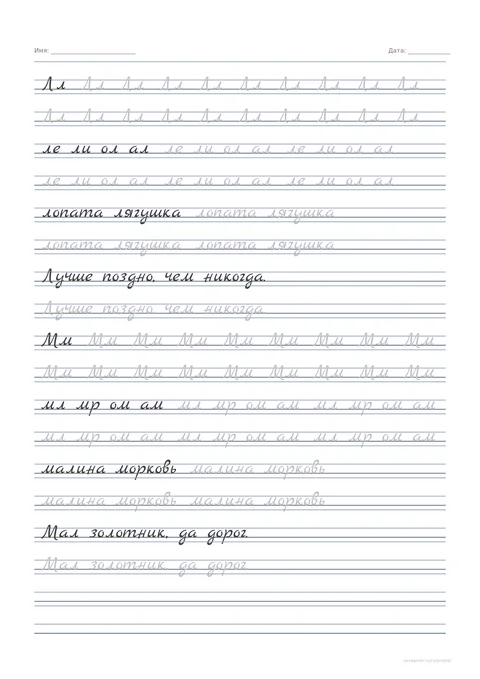 Имя: Дата:
Лл Лл Лл Лл Лл Лл Лл Лл Лл Лл
Лл Лл Лл Лл Лл Лл Лл Лл Лл Лл
ле ли ол ал ле ли ол ал ле ли ол ал
ле ли ол ал ле ли ол ал ле ли ол ал
лопата лягушка лопата лягушка
лопата лягушка лопата лягушка
Лучше поздно, чем никогда.
Лучше поздно, чем никогда.
Мм Мм Мм Мм Мм Мм Мм Мм Мм
Мм Мм Мм Мм Мм Мм Мм Мм Мм
мл мр ом ам мл мр ом ам мл мр ом ам
мл мр ом ам мл мр ом ам мл мр ом ам
малина морковь малина морковь
малина морковь малина морковь
Мал золотник, да дорог.
Мал золотник, да дорог.